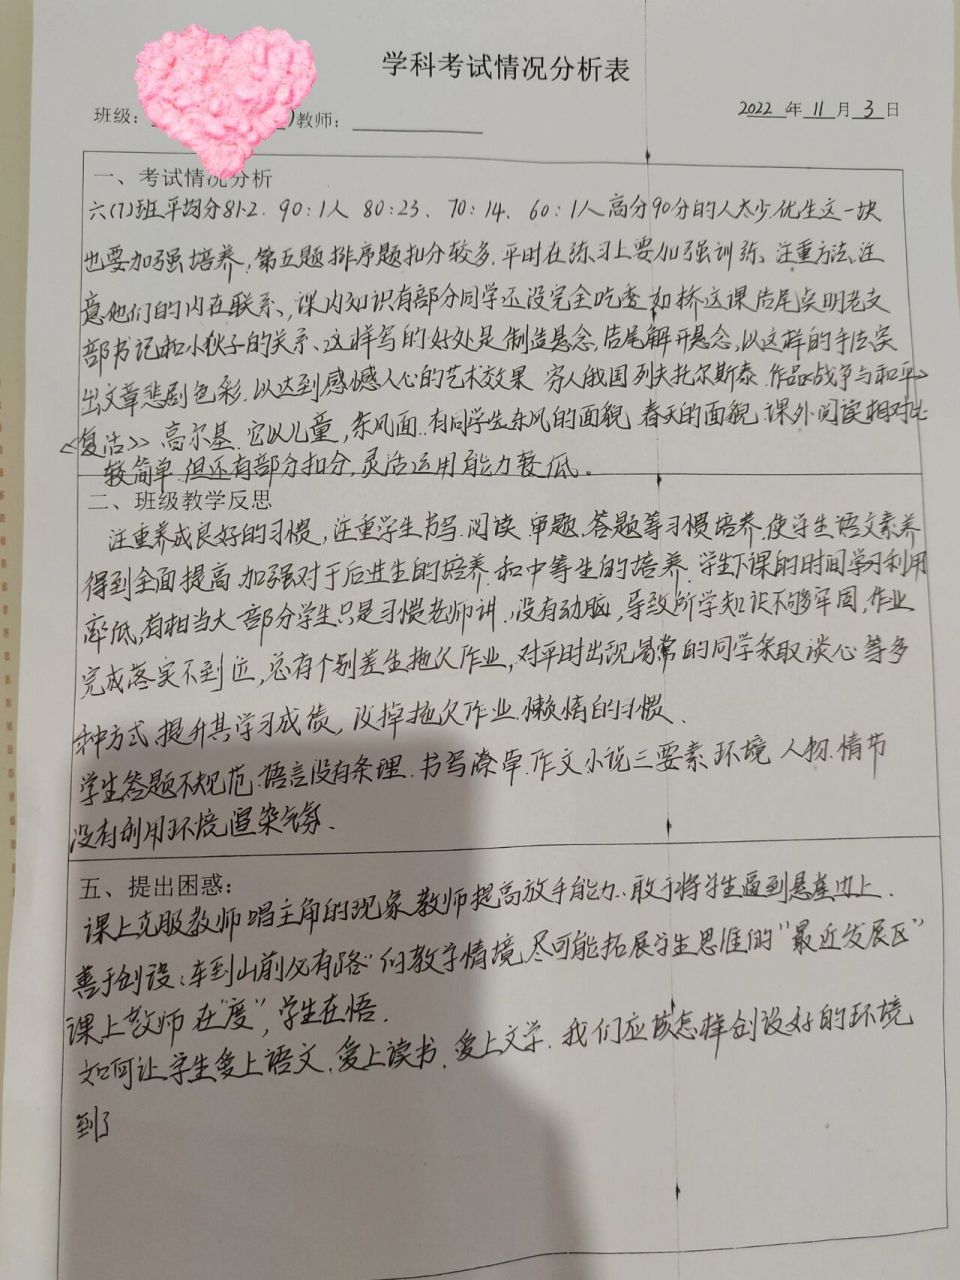 学科考试情况分析表
班级: )教师:
2022 年 11 月 3 日
一、考试情况分析
六(7)班平均分81.2. 90:1人 80:23、70:14、60:1人高分90分的人太少,优生这一块
也要加强培养,第五题排序题扣分较多.平时在练习上要加强训练、注重方法,注
意他们的内在联系、课内知识有部分同学还没完全吃透,如桥这课结尾点明老支
部书记和小伙子的关系、这样写的好处是制造悬念,结尾解开悬念,以这样的手法突
出文章悲剧色彩.以达到感憾人心的艺术效果 穷人俄国列夫托尔斯泰.作品《战争与和平》
《复活》高尔基.它以儿童,东风面.有同学先东风的面貌 春天的面貌 课外阅读相对比
较简单.但还有部分扣分,灵活运用能力较低。
二、班级教学反思
注重养成良好的习惯,注重学生书写.阅读.审题.答题等习惯培养.使学生语文素养
得到全面提高.加强对于后进生的培养.和中等生的培养.学生下课的时间学习利用
率低,有相当大一部分学生只是习惯老师讲.没有动脑,导致所学知识不够牢固,作业
完成落实不到位,总有个别差生拖欠作业,对平时出现异常的同学采取谈心等多
种方式,提升其学习成绩,改掉拖欠作业.懒惰的习惯、
学生答题不规范.语言没有条理.书写潦草.作文小说三要素 环境 人物.情节
没有利用环境渲染气氛、
五、提出困惑:
课上克服教师唱主角的现象教师提高放手能力.敢于将学生逼到悬崖边上.
善于创设:车到山前必有路”的教学情境,尽可能拓展学生思维的“最近发展区”
课上教师在“度”,学生在悟.
如何让学生爱上语文.爱上读书.爱上文学.我们应该怎样创设好的环境
到了